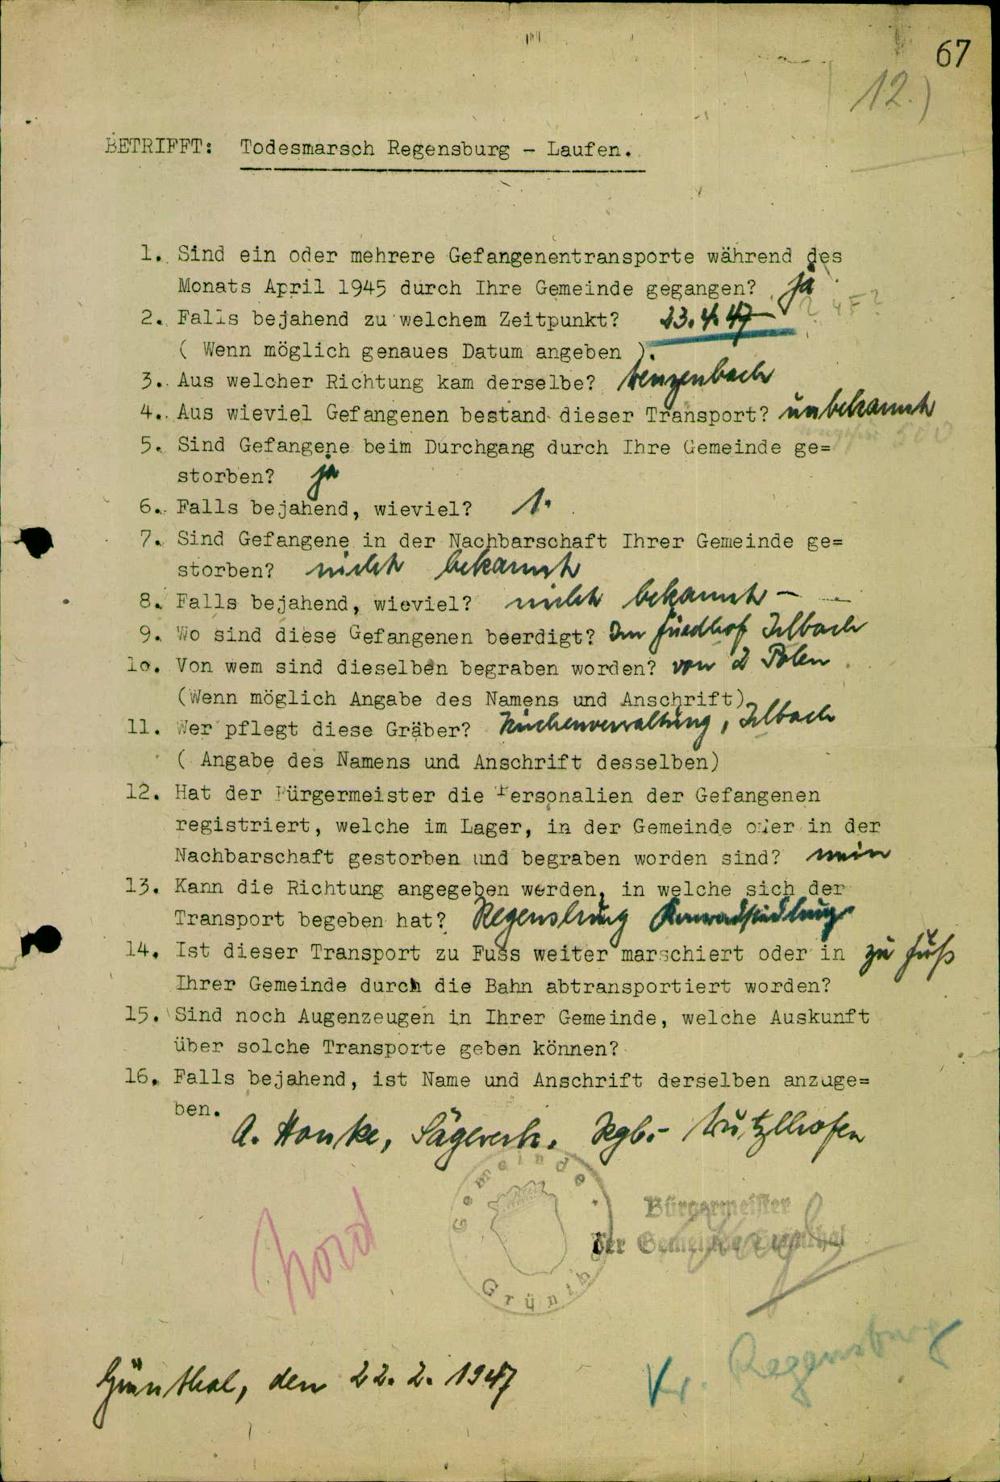 67
12.)
BETRIFFT: Todesmarsch Regensburg - Laufen.
1. Sind ein oder mehrere Gefangenentransporte während des
Monats April 1945 durch Ihre Gemeinde gegangen? ja
2. Falls bejahend zu welchem Zeitpunkt? 23.4.47
( Wenn möglich genaues Datum angeben ).
3. Aus welcher Richtung kam derselbe? Wenzenbach
4. Aus wieviel Gefangenen bestand dieser Transport? unbekannt
500
5. Sind Gefangene beim Durchgang durch Ihre Gemeinde ge=
storben? ja
6. Falls bejahend, wieviel? 1.
7. Sind Gefangene in der Nachbarschaft Ihrer Gemeinde ge=
storben? nicht bekannt
8. Falls bejahend, wieviel? nicht bekannt -
9. Wo sind diese Gefangenen beerdigt? Im Friedhof Irlbach
lo. Von wem sind dieselben begraben worden? von 2 Polen
(Wenn möglich Angabe des Namens und Anschrift)
11. Wer pflegt diese Gräber? Kirchenverwaltung, Irlbach
( Angabe des Namens und Anschrift desselben)
12. Hat der Bürgermeister die Personalien der Gefangenen
registriert, welche im Lager, in der Gemeinde oder in der
Nachbarschaft gestorben und begraben worden sind? nein
13. Kann die Richtung angegeben werden, in welche sich der
Transport begeben hat? Regensburg Konradsiedlung
14. Ist dieser Transport zu Fuss weiter marschiert oder in zu Fuß
Ihrer Gemeinde durch die Bahn abtransportiert worden?
15. Sind noch Augenzeugen in Ihrer Gemeinde, welche Auskunft
über solche Transporte geben können?
16. Falls bejahend, ist Name und Anschrift derselben anzuge=
ben.
A. Hanke, Sägewerk. Rgb.- Wutzlhofen
Gemeinde
Grünthal
Bürgermeister
der Gemeinde Grünthal
Nord
Grünthal, den 22.2.1947
Kr. Regensburg